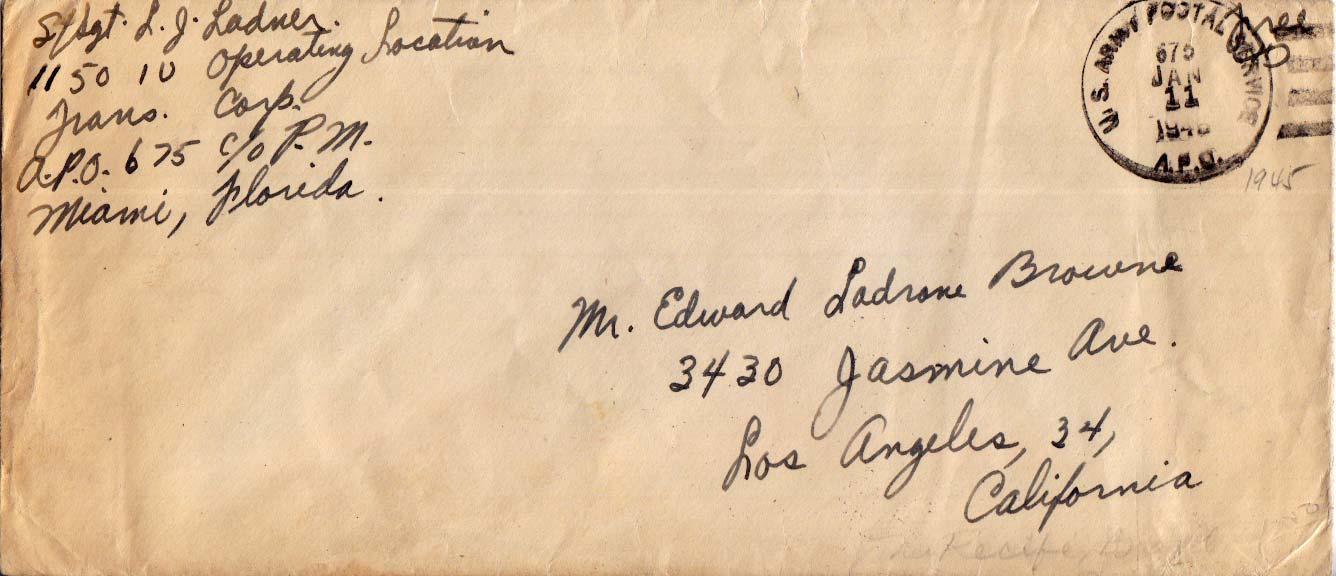 S/Sgt. L. J. Ladner.
1150 10 Operating Location
Trans. Corp.
A.P.O. 675 c/o P.M.
Miami, Florida.
Free
U.S. ARMY POSTAL SERVICE
675
JAN
11
A.P.O.
1945
Mr. Edward Ladrone Browne
3430 Jasmine Ave.
Los Angeles, 34,
California
Recife, Brazil